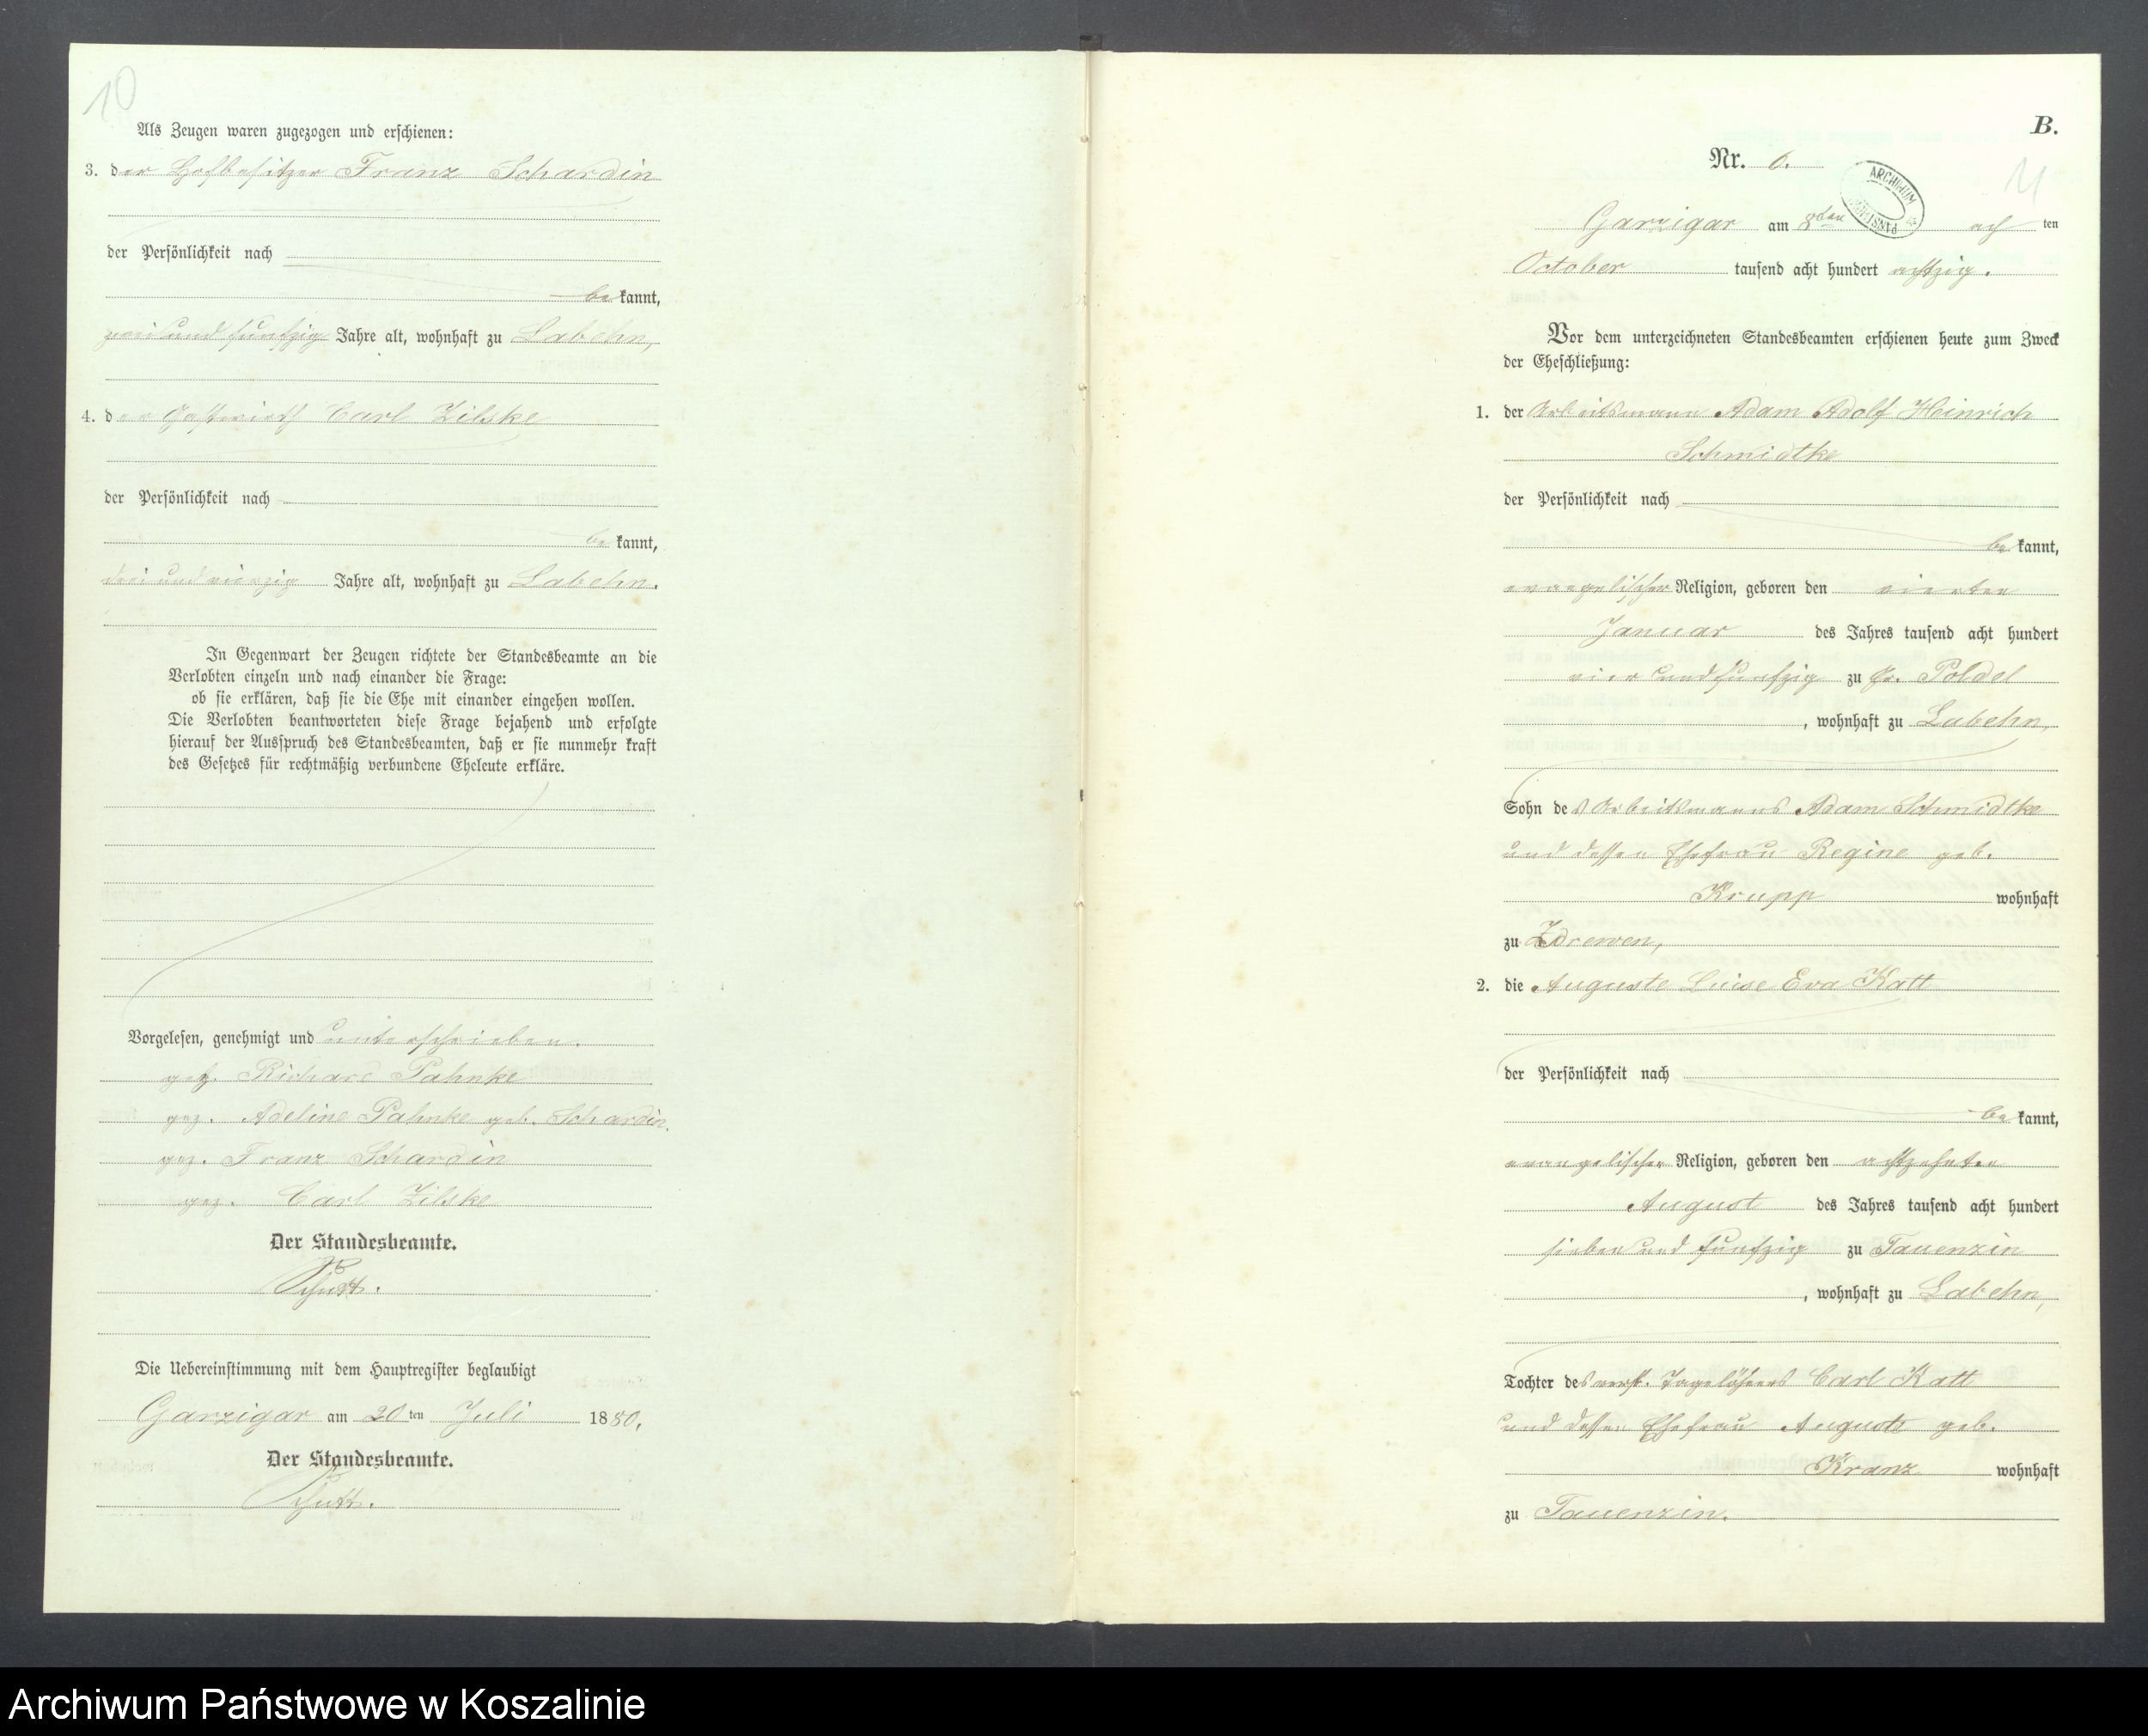 10
Als Zeugen waren zugezogen und erschienen:
3. der Hofbesitzer Franz Schardin
der Persönlichkeit nach
bekannt,
zwei und fünfzig Jahre alt, wohnhaft zu Labehn,
4. der Gastwirth Carl Zilske
der Persönlichkeit nach
bekannt,
drei und vierzig Jahre alt, wohnhaft zu Labehn.
In Gegenwart der Zeugen richtete der Standesbeamte an die
Verlobten einzeln und nach einander die Frage:
ob sie erklären, daß sie die Ehe mit einander eingehen wollen.
Die Verlobten beantworteten diese Frage bejahend und erfolgte
hierauf der Ausspruch des Standesbeamten, daß er sie nunmehr kraft
des Gesetzes für rechtmäßig verbundene Eheleute erkläre.
Vorgelesen, genehmigt und unterschrieben.
gez. Richard Pahnke
gez. Adeline Pahnke geb. Schardin.
gez. Franz Schardin
gez. Carl Zilske
Der Standesbeamte.
Die Uebereinstimmung mit dem Hauptregister beglaubigt
Garzigar am 20ten Juli 1880.
Der Standesbeamte.
B.
Nr. 6.
11
ARCHIWUM
Garzigar am 8ten ach ten
October tausend acht hundert achtzig.
Vor dem unterzeichneten Standesbeamten erschienen heute zum Zweck
der Eheschließung:
1. der Arbeitsmann Adam Adolf Heinrich
Schmidtke
der Persönlichkeit nach
bekannt,
evangelischer Religion, geboren den vierten
Januar des Jahres tausend acht hundert
vier und fünfzig zu Gr. Poldel
, wohnhaft zu Labehn,
Sohn des Arbeitsmanns Adam Schmidtke
und dessen Ehefrau Regine geb.
Krupp wohnhaft
zu Zdrewen,
2. die Auguste Luise Eva Katt
der Persönlichkeit nach
bekannt,
evangelischer Religion, geboren den achtzehnten
August des Jahres tausend acht hundert
sieben und fünfzig zu Tauenzin
, wohnhaft zu Labehn,
Tochter des verst. Tagelöhners Carl Katt
und dessen Ehefrau Auguste geb.
Kranz wohnhaft
zu Tauenzin.
Archiwum Państwowe w Koszalinie